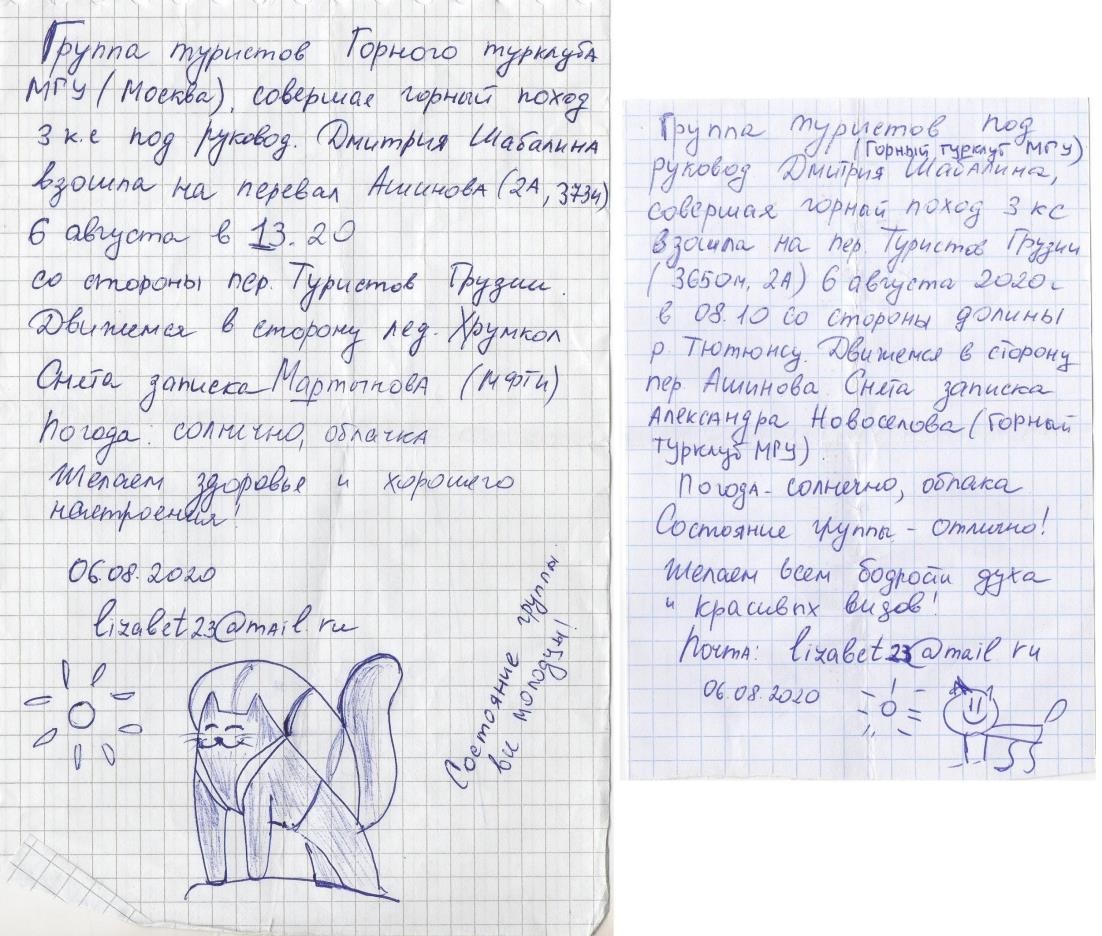 Группа туристов Горного турклуба
МГУ (Москва), совершая горный поход
3 к.с под руковод. Дмитрия Шабалина
взошла на перевал Ашинова (2А, 3734)
6 августа в 13.20
со стороны пер. Туристов Грузии.
Движемся в сторону лед. Хрумкол
Снята записка Мартынова (МФТИ)
Погода: солнечно, облачка
Желаем здоровье и хорошего
настроения!
06.08.2020
lizabet23@mail.ru
Состояние группы
все молодцы!
Группа туристов под
(Горный турклуб МГУ)
руковод Дмитрия Шабалина,
совершая горный поход 3 кс
взошла на пер. Туристов Грузии
(3650м, 2А) 6 августа 2020г
в 08.10 со стороны долины
р. Тютюнсу. Движемся в сторону
пер. Ашинова. Снята записка
Александра Новоселова (Горный
турклуб МГУ).
Погода - солнечно, облака
Состояние группы - отлично!
Желаем всем бодрости духа
и красивых видов!
Почта: lizabet23@mail ru
06.08.2020